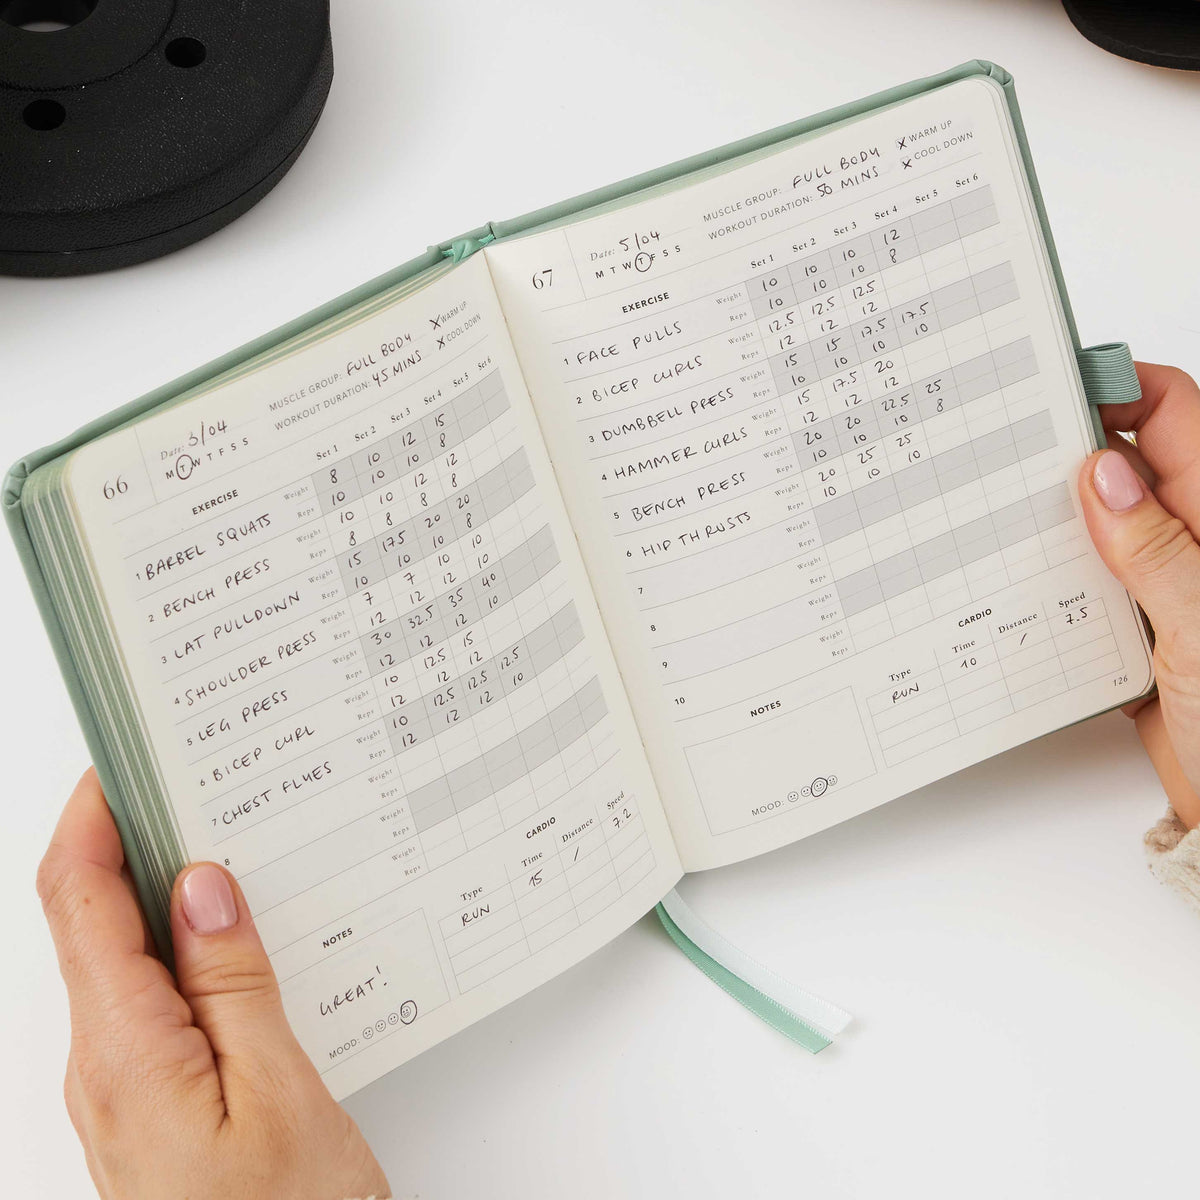 66
Date: 3/04
M T W T F S S
MUSCLE GROUP: FULL BODY
X WARM UP
WORKOUT DURATION: 45 MINS
X COOL DOWN
EXERCISE Set 1 Set 2 Set 3 Set 4 Set 5 Set 6
1 BARBEL SQUATS Weight 8 10 12 15
Reps 10 10 10 8
2 BENCH PRESS Weight 10 10 12 12
Reps 8 8 8 8
3 LAT PULLDOWN Weight 15 17.5 20 20
Reps 10 10 10 8
4 SHOULDER PRESS Weight 7 7 10 10
Reps 12 12 12 10
5 LEG PRESS Weight 30 32.5 35 40
Reps 12 12 12 10
6 BICEP CURL Weight 10 12.5 15
Reps 12 12 12
7 CHEST FLYES Weight 10 12.5 12.5 12.5
Reps 12 12 12 10
8 Weight
Reps
Weight
Reps
Weight
Reps
NOTES
GREAT!
MOOD:
CARDIO
Type Time Distance Speed
RUN 15 / 7.2
67
Date: 5/04
M T W T F S S
MUSCLE GROUP: FULL BODY
X WARM UP
WORKOUT DURATION: 50 MINS
X COOL DOWN
EXERCISE Set 1 Set 2 Set 3 Set 4 Set 5 Set 6
1 FACE PULLS Weight 10 10 10 12
Reps 10 10 10 8
2 BICEP CURLS Weight 12.5 12.5 12.5
Reps 12 12 12
3 DUMBBELL PRESS Weight 15 15 17.5 17.5
Reps 10 10 10 10
4 HAMMER CURLS Weight 15 17.5 20
Reps 12 12 12
5 BENCH PRESS Weight 20 20 22.5 25
Reps 10 10 10 8
6 HIP THRUSTS Weight 20 25 25
Reps 10 10 10
7 Weight
Reps
8 Weight
Reps
9 Weight
Reps
10 Weight
Reps
NOTES
MOOD:
CARDIO
Type Time Distance Speed
RUN 10 / 7.5
126